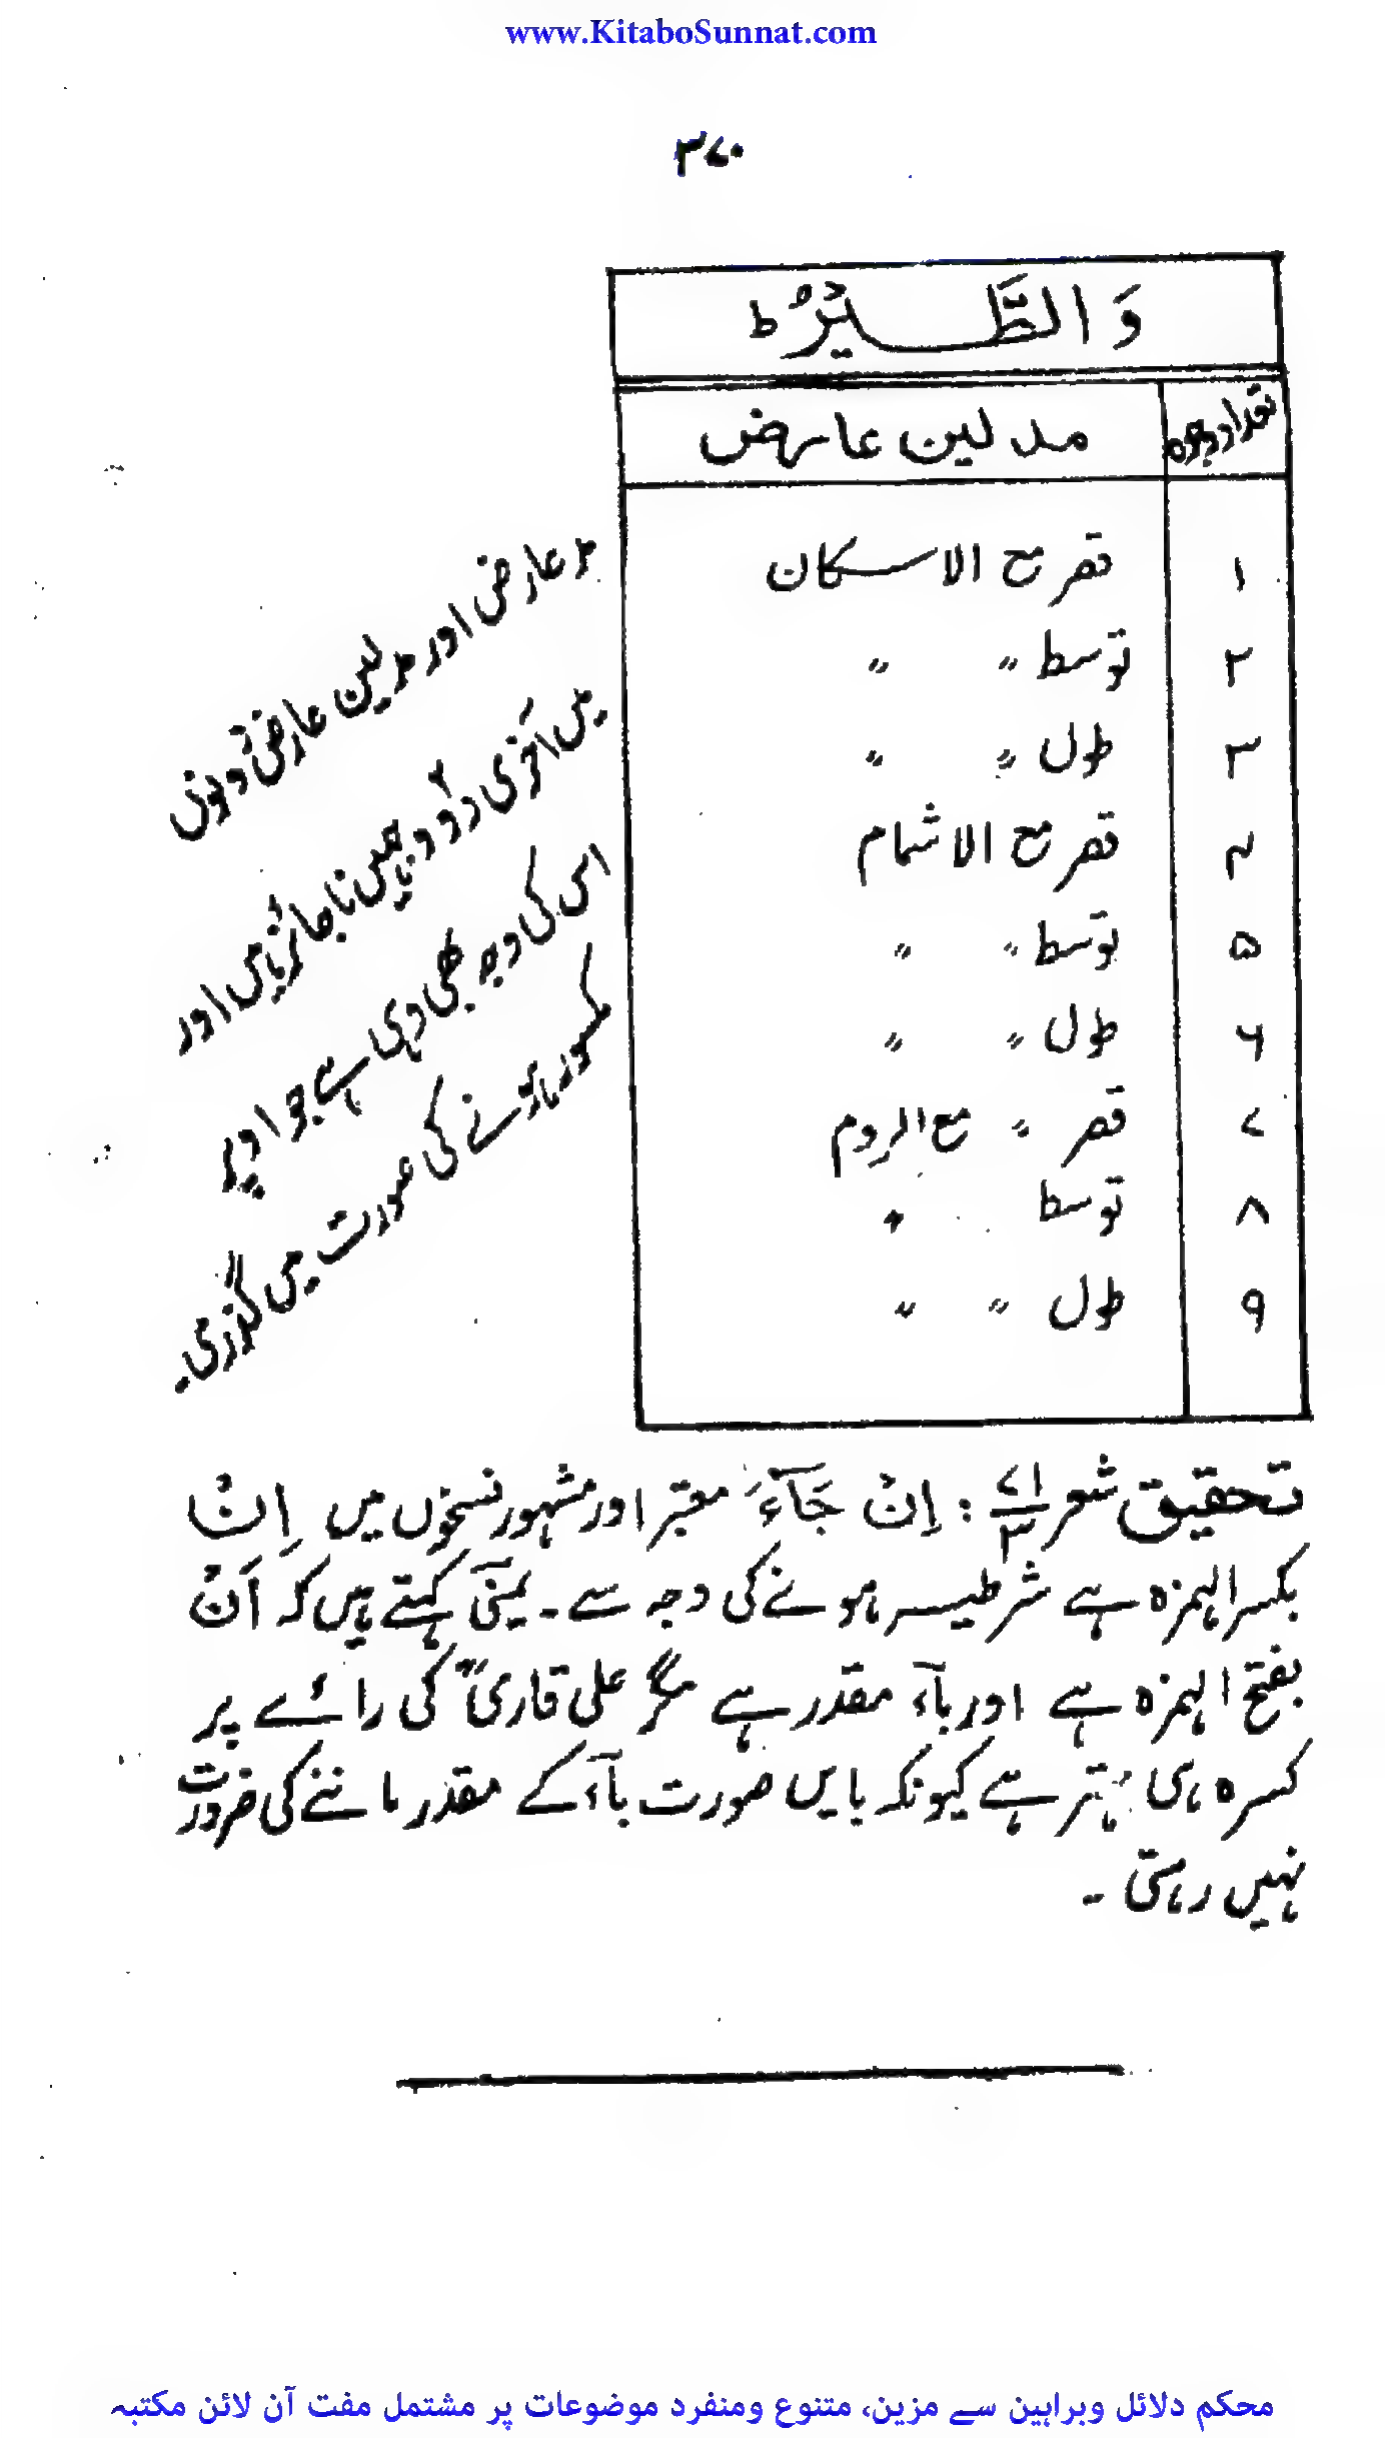 www.KitaboSunnat.com
۳۷۰
وَالطَّیْرُ ط
تعداد وجوہ مد لین عارض
۱ قصر مع الاسکان
۲ توسط 〃 〃
۳ طول 〃 〃
۴ قصر مع الاشمام
۵ توسط 〃 〃
۶ طول 〃 〃
۷ قصر 〃 مع الروم
۸ توسط 〃
۹ طول 〃 〃
مد عارض اور مد لین عارض دونوں
میں آخری دو۲ وجہیں ناجائز ہیں اور
اس کی وجہ بھی وہی ہے جو اوپر
مکسور ہونے کی صورت میں گذری۔
تحقیق شعر ۷۱/۳ : اِنْ جَآءَ معتبر اور مشہور نسخوں میں اِنْ
بکسر الہمزہ ہے شرطیہ ہونے کی وجہ سے ۔ یمنی کہتے ہیں کہ اَنْ
بفتح الہمزہ ہے اور بآء مقدر ہے مگر علی قاریؒ کی رائے پر
کسرہ ہی بہتر ہے کیونکہ بایں صورت بآء کے مقدر ماننے کی ضرورت
نہیں رہتی ۔
محکم دلائل وبراہین سے مزین، متنوع ومنفرد موضوعات پر مشتمل مفت آن لائن مکتبہ